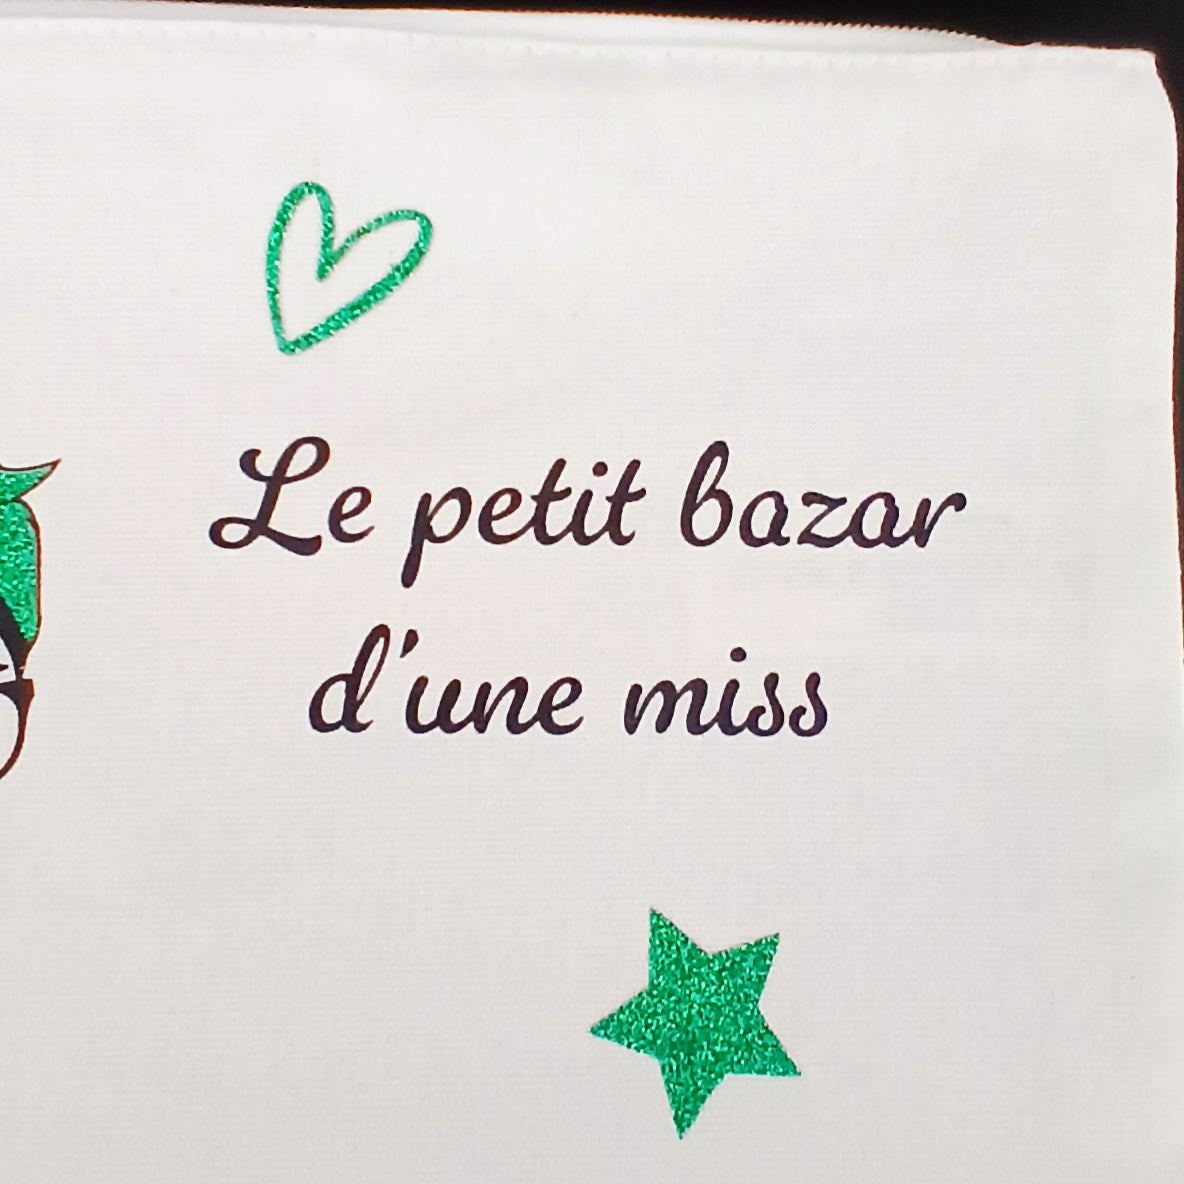 Le petit bazar
d'une miss